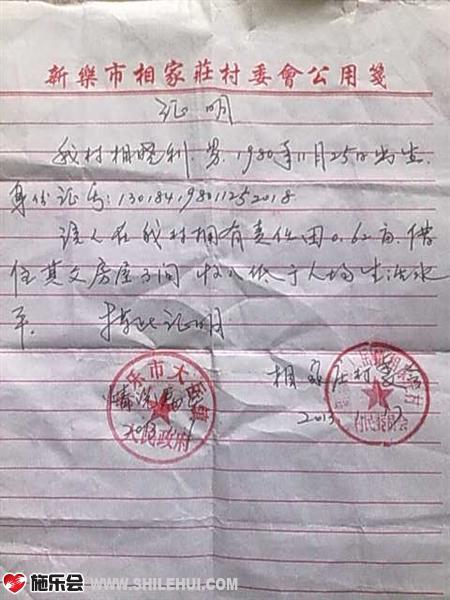 新樂市相家莊村委會公用箋
证明
我村相晓利.男.1980年11月25日出生.
身份证号:130184198011252018
该人在我村拥有责任田0.62亩.借
住其父房屋3间 收入低于人均生活水
平. 特此证明
乐市大
情况属
人民政府
相家庄村委会
2013.
施乐会 WWW.SHILEHUI.COM